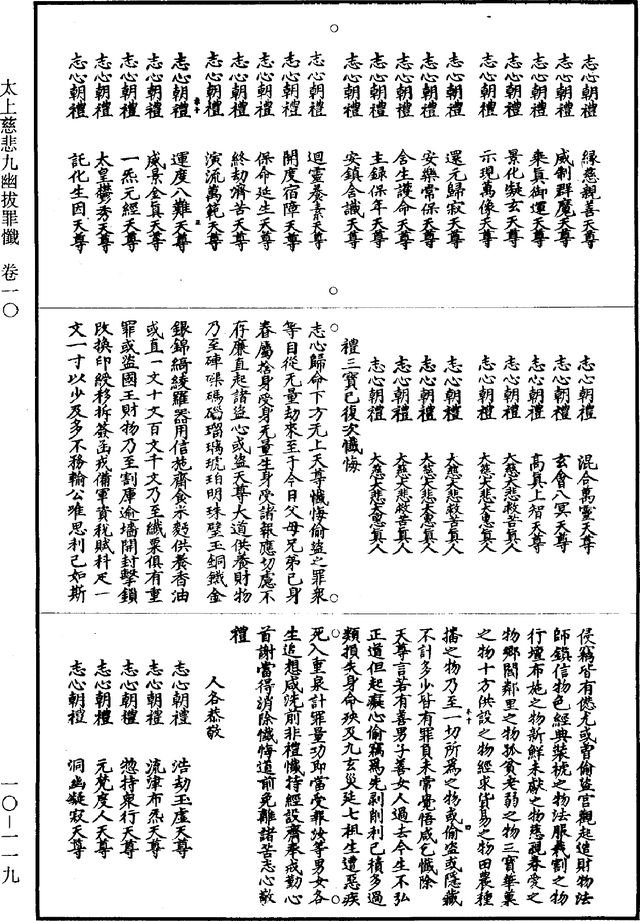 太上慈悲九幽拔罪懺　卷一〇
一〇—一一九
志心朝禮　緣慈親善天尊
志心朝禮　威制群魔天尊
志心朝禮　乘真御運天尊
志心朝禮　景化凝玄天尊
志心朝禮　示現萬像天尊
志心朝禮　還元歸寂天尊
志心朝禮　安樂常保天尊
志心朝禮　含生護命天尊
志心朝禮　主録保年天尊
志心朝禮　安鎮含識天尊
志心朝禮　迴靈養素天尊
志心朝禮　開度宿障天尊
志心朝禮　保命延生天尊
志心朝禮　終劫濟苦天尊
志心朝禮　演流萬範天尊
志心朝禮　運度八難天尊
志心朝禮　威景金真天尊
志心朝禮　一炁元經天尊
志心朝禮　太皇鬱秀天尊
志心朝禮　託化生因天尊
志心朝禮　混合萬靈天尊
志心朝禮　玄會八冥天尊
志心朝禮　高真上智天尊
志心朝禮　大慈大悲救苦真人
志心朝禮　大慈大悲大惠真人
志心朝禮　大慈大悲救苦真人
志心朝禮　大慈大悲大惠真人
志心朝禮　大慈大悲救苦真人
志心朝禮　大慈大悲大惠真人
禮三寶已復次懺悔
志心歸命下方无上天尊懺悔偷盜之罪衆
等自從无量劫來至于今日父母兄弟己身
眷屬捨身受身无量生身受諸報應切處不
存廉直起諸盜心或盜天尊大道供養財物
乃至硨磲碼碯瑠璃琥珀明珠璧玉銅鐵金
銀錦綺綾羅器用信施齋食米麪供養香油
或直一文十文百文千文乃至纖粟俱有重
罪或盜國王財物乃至割庫逾墻開封擊鎖
改換印綬移拆簽函戎備軍資稅賦科尺一
文一寸以少及多不務輸公唯思利己如斯
侵竊皆有愆尤或曾偷盜官觀起造財物法
師鎮信物色經典裝褫之物法服裁割之物
行壇布施之物新鮮未獻之物慈覲眷愛之
物鄉閭鄰里之物孤貧老弱之物三寶華菓
之物十方供設之物經求貨易之物田農種
播之物乃至一切所爲之物或偷盜或隱藏
不計多少皆有罪負未常覺悟咸乞懺除
天尊言若有善男子善女人過去今生不弘
正道但起癡心偷竊爲先剥削利己積多過
類損失身命殃及九玄災延七祖生遭惡疾
死入重泉計罪量功即當受報汝等男女各
生追想咸洗前非禮懺持經設齋奉戒勤心
首謝當得消除懺悔道前免離諸苦志心敬
禮
人各恭敬
志心朝禮　浩劫玉虚天尊
志心朝禮　流津布炁天尊
志心朝禮　惣持衆行天尊
志心朝禮　元梵度人天尊
志心朝禮　洞幽凝寂天尊